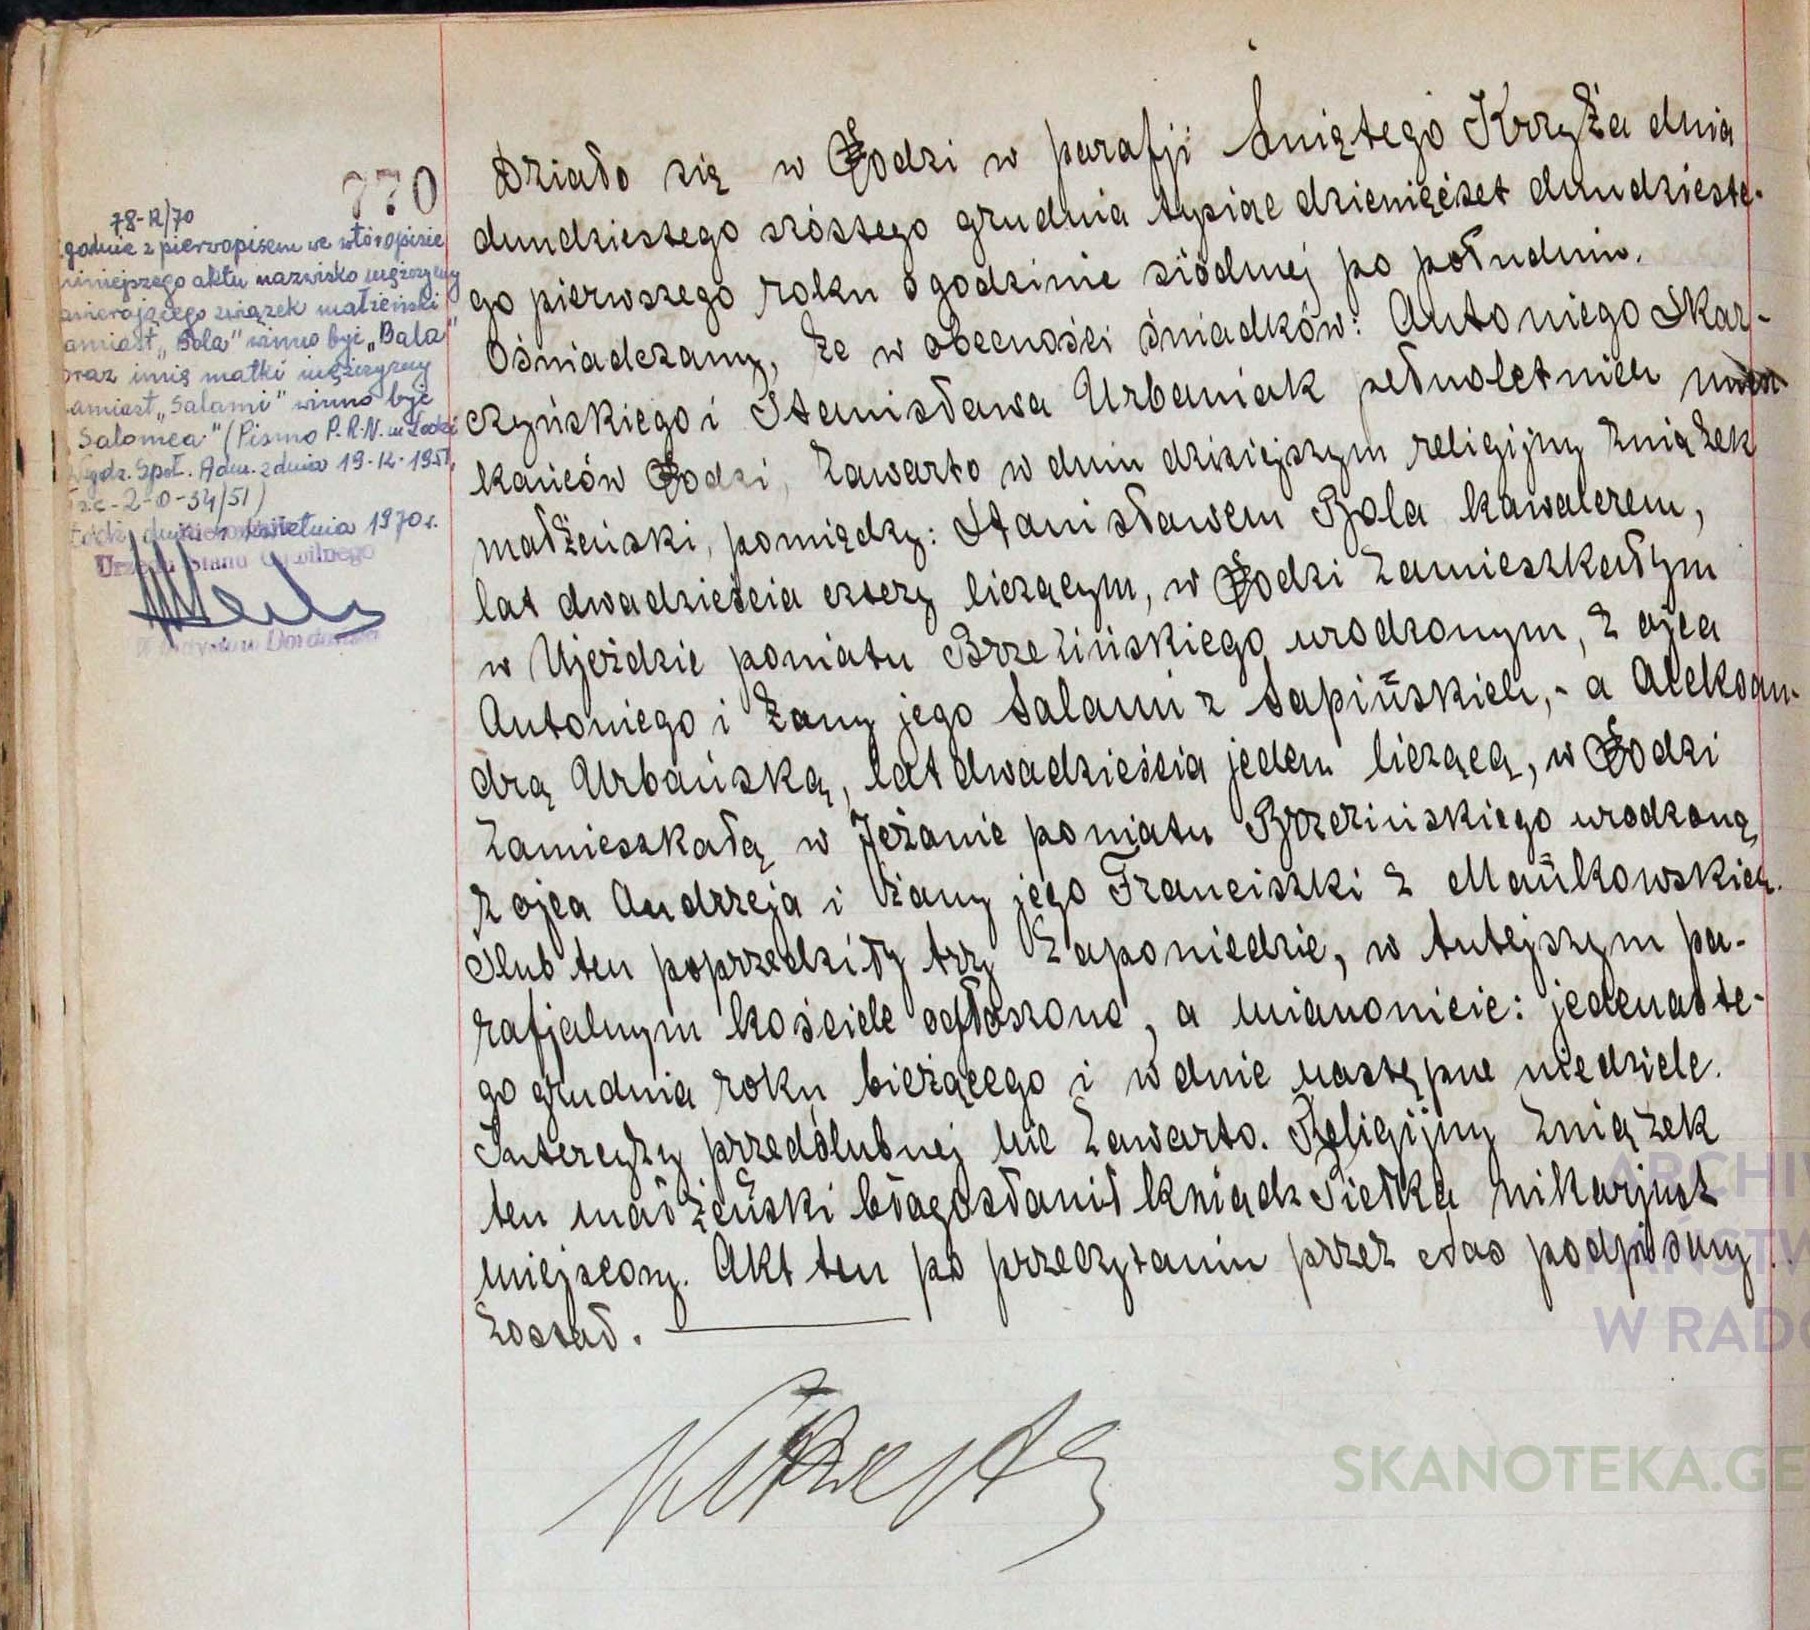 770
78-R/70
godnie z pierwopisem we wtóropisie
niniejszego aktu nazwisko mężczyzny
awierającego związek małżeński
amiast "Bola" winno być "Bala"
oraz imię matki mężczyzny
amiast "Salami" winno być
Salomea" (Pismo P.R.N. w Łodzi
Społ. Adm. z dnia 19-12-1951,
-2-0-54/51)
dnia kwietnia 1970 r.
Urzędu Stanu Cywilnego
Działo się w Łodzi w parafji Świętego Krzyża dnia
dwudziestego szóstego grudnia tysiąc dziewięćset dwudzieste-
go pierwszego roku o godzinie siódmej po południu.
Oświadczamy, że w obecności świadków: Antoniego Skar-
czyńskiego i Stanisława Urbaniak pełnoletnich miesz
kańców Łodzi, zawarto w dniu dzisiejszym religijny związek
małżeński, pomiędzy: Stanisławem Bola kawalerem,
lat dwadzieścia cztery liczącym, w Łodzi zamieszkałym
w Ujeździe powiatu Brzezińskiego urodzonym, z ojca
Antoniego i żany jego Salami z Sapińskich,- a Aleksan-
drą Urbańską, lat dwadzieścia jeden liczącą, w Łodzi
zamieszkałą w Jeżanie powiatu Brzezińskiego urodzoną,
z ojca Andrzeja i żany jego Franciszki z Mańkowskich.
Ślub ten poprzedziły trzy zapowiedzie, w tutejszym pa-
rafjalnym kościele ogłoszone, a mianowicie: jedenaste-
go grudnia roku bieżącego i w dnie następne niedziele.
Intercyzy przedślubnej nie zawarto. Religijny związek
ten małżeński błagosławił ksiądz Piełka wikarjusz
miejscowy. Akt ten po przeczytaniu przez Nas podpisany
został.
ARCHIW
PAŃSTW
W RADO
SKANOTEKA.GE